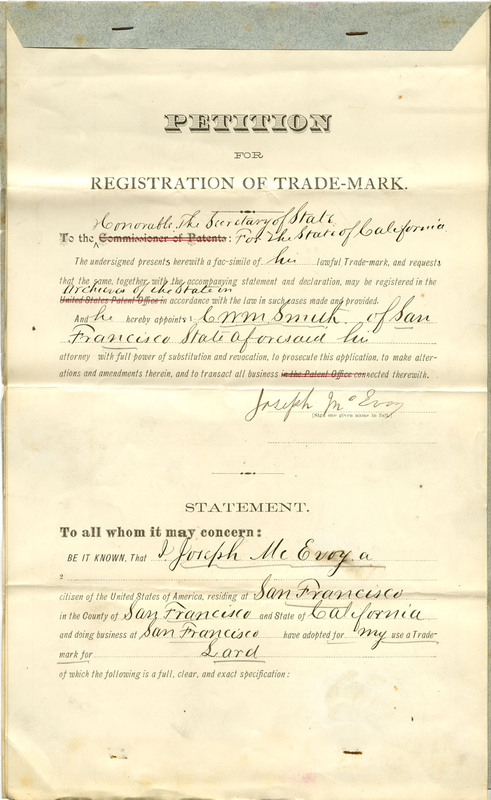 PETITION
FOR
REGISTRATION OF TRADE-MARK.
Honorable, The Secretary of State
To the Commissioner of Patents: For the State of California
The undersigned presents herewith a fac-simile of his lawful Trade-mark, and requests
that the same, together with the accompanying statement and declaration, may be registered in the
Archives of the State in
United States Patent Office in accordance with the law in such cases made and provided.
And he hereby appoints: C Wm Smith of San
Francisco State aforesaid his
attorney with full power of substitution and revocation, to prosecute this application, to make alter-
ations and amendments therein, and to transact all business in the Patent Office connected therewith.
Joseph McEvoy
[Sign one given name in full.]
STATEMENT.
To all whom it may concern:
BE IT KNOWN, That I Joseph McEvoy a
2
citizen of the United States of America, residing at San Francisco
in the County of San Francisco and State of California
and doing business at San Francisco have adopted for my use a Trade-
mark for Lard
of which the following is a full, clear, and exact specification: